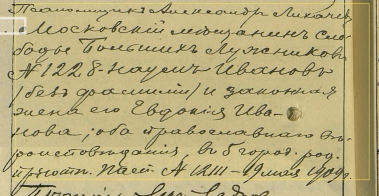 Псаломщикъ Александръ Лихачев
Московскій мѣщанинъ сло-
боды Большихъ Лужниковъ
№ 1228 Наумъ Ивановъ
(безъ фамиліи) и законная
жена его Евдокія Ива-
нова, оба православнаго вѣ-
роисповѣданія
19 мая 1909 г.